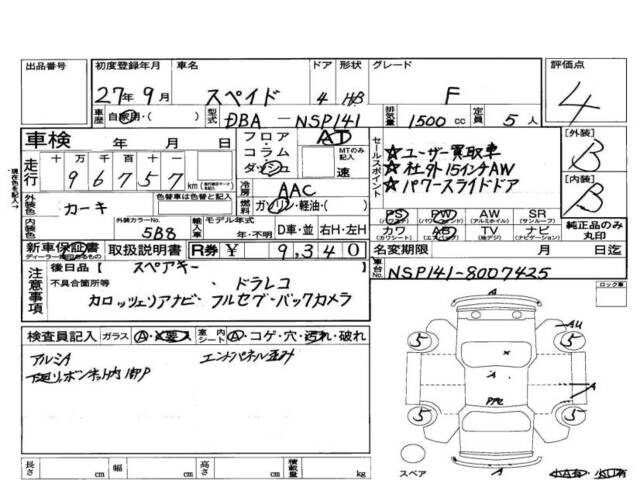 出品番号 初度登録年月 車名 ドア 形状 グレード 評価点
27年 9月 スペイド 4 H/B F 4
車歴 自家用・( ) 型式 DBA-NSP141 排気量 1500 cc 定員 5人
車検 年 月 日 フロア・コラム・ダッシュ AT MTのみ記入 速
セールスポイント ☆ユーザー買取車
☆社外15インチAW
☆パワースライドドア
[外装] B
[内装] B
走行 十万 千百十 96757 km
冷房 AAC
燃料 ガソリン・軽油・( )
外装色 カーキ 色替車は色替と記入
内装色 外装カラーNo. 5B8 輸入車 モデル年式 年・不明 D車・並 右H・左H
PS (パワステ) PW (パワーウィンド) AW (アルミホイル) SR (サンルーフ)
カワ (カワシート) AB (エアバック) TV (地デジ) ナビ (ナビゲーション) 純正品のみ丸印
新車保証書 取扱説明書 R券 ¥ 9,340 名変期限 月 日迄
注意事項 後日品【 スペアキー
不具合箇所等 ・ドラレコ
カロッツェリアナビ・フルセグ・バックカメラ
車台No. NSP141-8007425
ロック車
検査員記入 ガラス A・X要入 室内シート A・コゲ・穴・汚れ・破れ
アルミA エンドパネル歪み
下廻りボンネット内サビP
AU
5 5
X
A A
PAC
5 5
A
スペア
長さ cm 幅 cm 高さ cm 積載量 kg